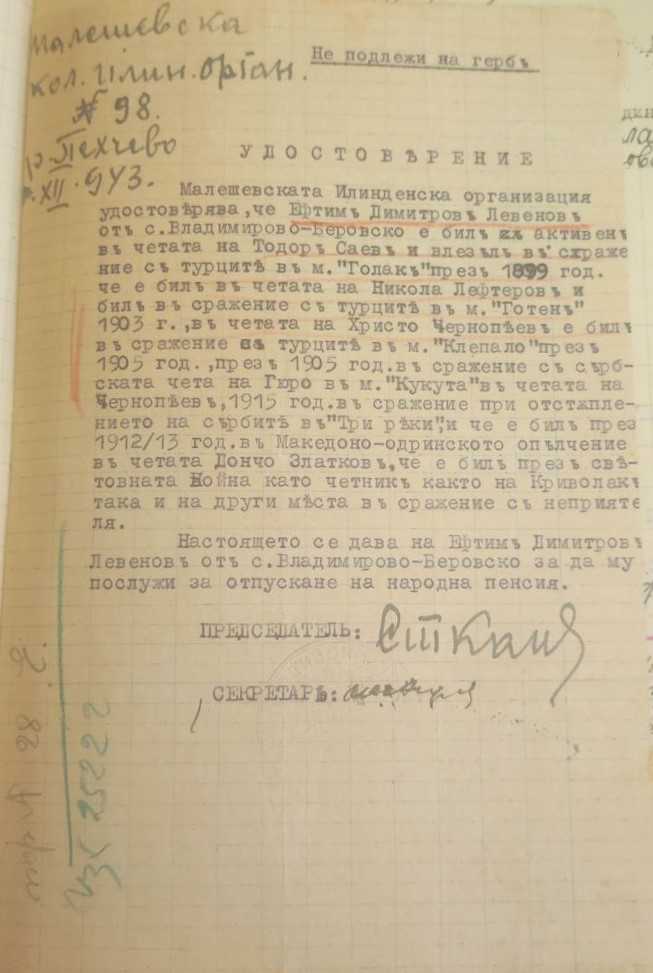 Малешевска
кол. Илин. Орган.
№ 98.
Пехчево
XII. 943.
Не подлежи на гербъ
УДОСТОВѢРЕНИЕ
Малешевската Илинденска организация
удостовѣрява, че Ефтимъ Димитровъ Левеновъ
отъ с.Владимирово-Беровско е билъ активенъ
въ четата на Тодоръ Саевъ и влезълъ въ сраже
ние съ турцитѣ въ м."Голакъ"презъ 1899 год.
че е билъ въ четата на Никола Лефтеровъ и
билъ въ сражение съ турцитѣ въ м."Готенъ"
1903 г.,въ четата на Христо Чернопѣевъ е билъ
въ сражение съ турцитѣ въ м."Клепало"презъ
1905 год.,презъ 1905 год.въ сражение съ сърб-
ската чета на Гюро въ м."Кукута"въ четата на
Чернопѣевъ,1915 год.въ сражение при отстѫпле-
нието на сърбитѣ въ"Три рѣки",и че е билъ през
1912/13 год.въ Македоно-одринското опълчение
въ четата Дончо Златковъ,че е билъ презъ свѣ-
товната Война като четникъ както на Криволакъ
така и на други мѣста въ сражение съ неприяте
ля.
Настоящето се дава на Ефтимъ Димитровъ
Левеновъ отъ с.Владимирово-Беровско за да му
послужи за отпускане на народна пенсия.
ПРЕДСЕДАТЕЛЬ:
СЕКРЕТАРЬ:
25222